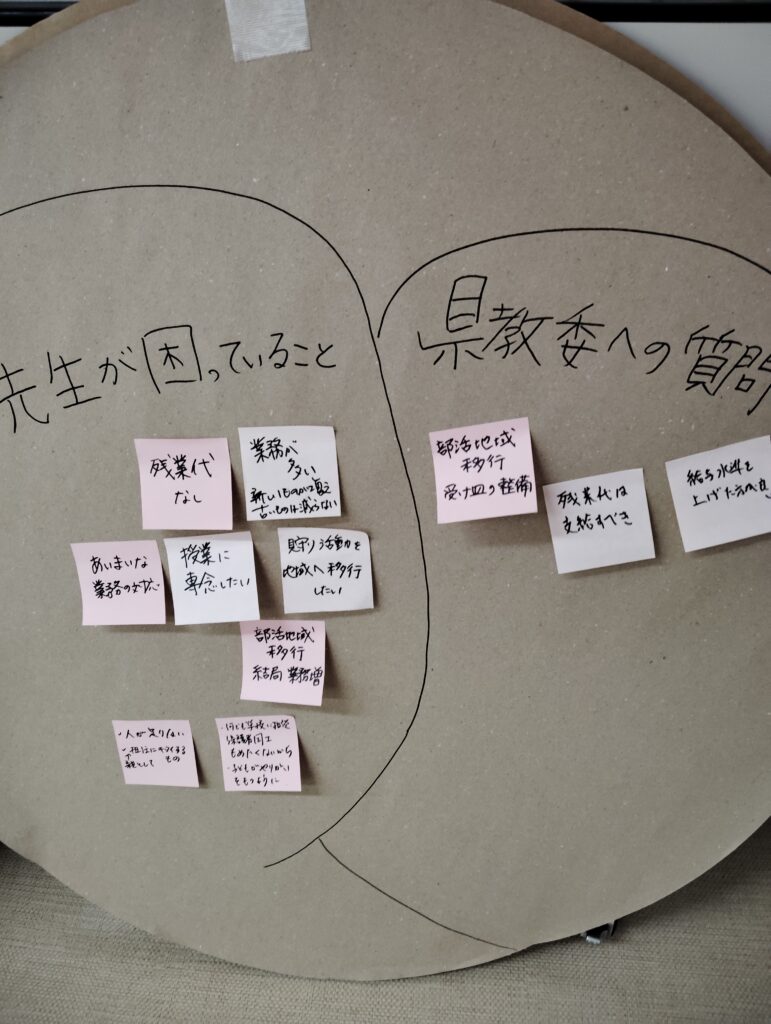 先生が困っていること
残業代
なし
業務が
多い
新しいものが増え
古いものは減らない
あいまいな
業務の対応
授業に
専念したい
貯り活動を
地域へ移行
したい
部活地域
移行
結局業務増
・人が足りない
もの
保護者同士
もめたくないから
・子どもがやりがい
をもつように
県教委への質問
部活地域
移行
受け皿の整備
残業代は
支給すべき
給与水準を
上げた方が